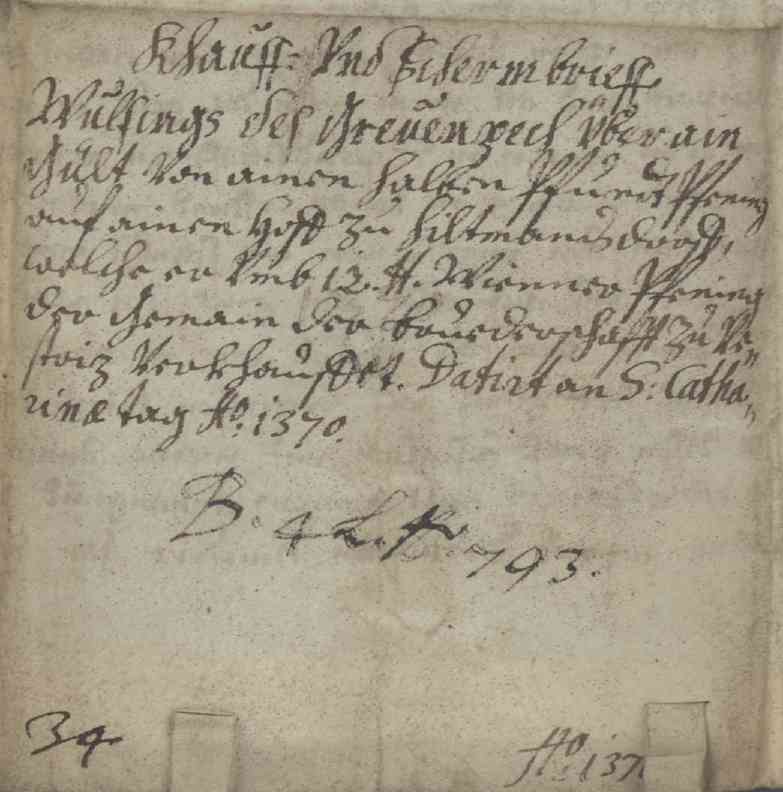 Khauff: Vnd Schermbrieff
Wulfings des Greuenpech Vber ain
Gült Von ainen halben Pfundt Pfening
auf ainen Hoff zu Hiltmansdorff,
welche er Vmb 12. ₶. Wienner Pfening
der Gemain der bruederschafft zu Ve„
striz Verkhauffet. Datirt an S: Catha„
rinæ tag Aº. 1370.
B. 4 L. Nº 793.
34
Aº. 137